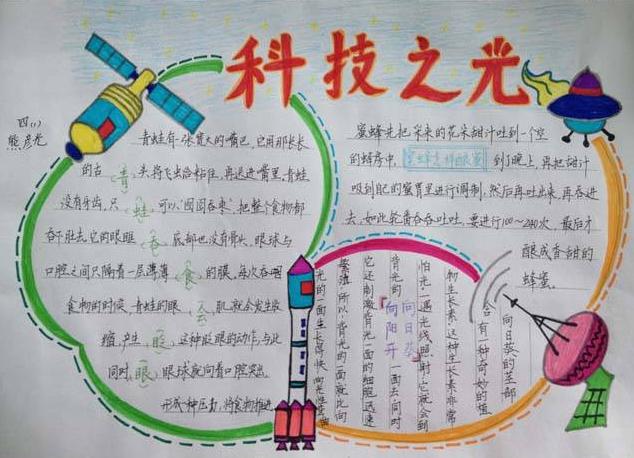 科技之光
四(1)
熊彦光
青蛙有一张宽大的嘴巴,它用那长长
的舌头将飞虫给粘住,再送进嘴里,青蛙
没有牙齿,只可以"囫囵吞枣",把整个食物都
吞下肚去,它的眼眶底部也没有骨头,眼球与
口腔之间只隔着一层薄薄的膜,每次吞咽
食物的时候,青蛙的眼肌就会发生收
缩,产生这种眨眼的动作,与此
同时,眼球就向着口腔突出,
形成一种压力,将食物推进
青
蛙
吞
食
会
眨
眼
蜜蜂先把采来的花朵甜汁吐到一个空
的蜂房中,
蜜蜂怎样酿蜜
到了晚上,再把甜汁
吸到自己的蜜胃里进行调制,然后再吐出来,再吞进
去,如此轮番吞吞吐吐,要进行100~240次,最后才
酿成香甜的
蜂蜜。
向日葵的茎部
含有一种奇妙的植
物生长素,这种生长素非常
怕光,一遇光线照射,它就会到
背光的一面去,同时
向日葵
向阳开
它还刺激背光一面的细胞迅速
繁殖,所以,背光的一面就比向
光的一面生长得快